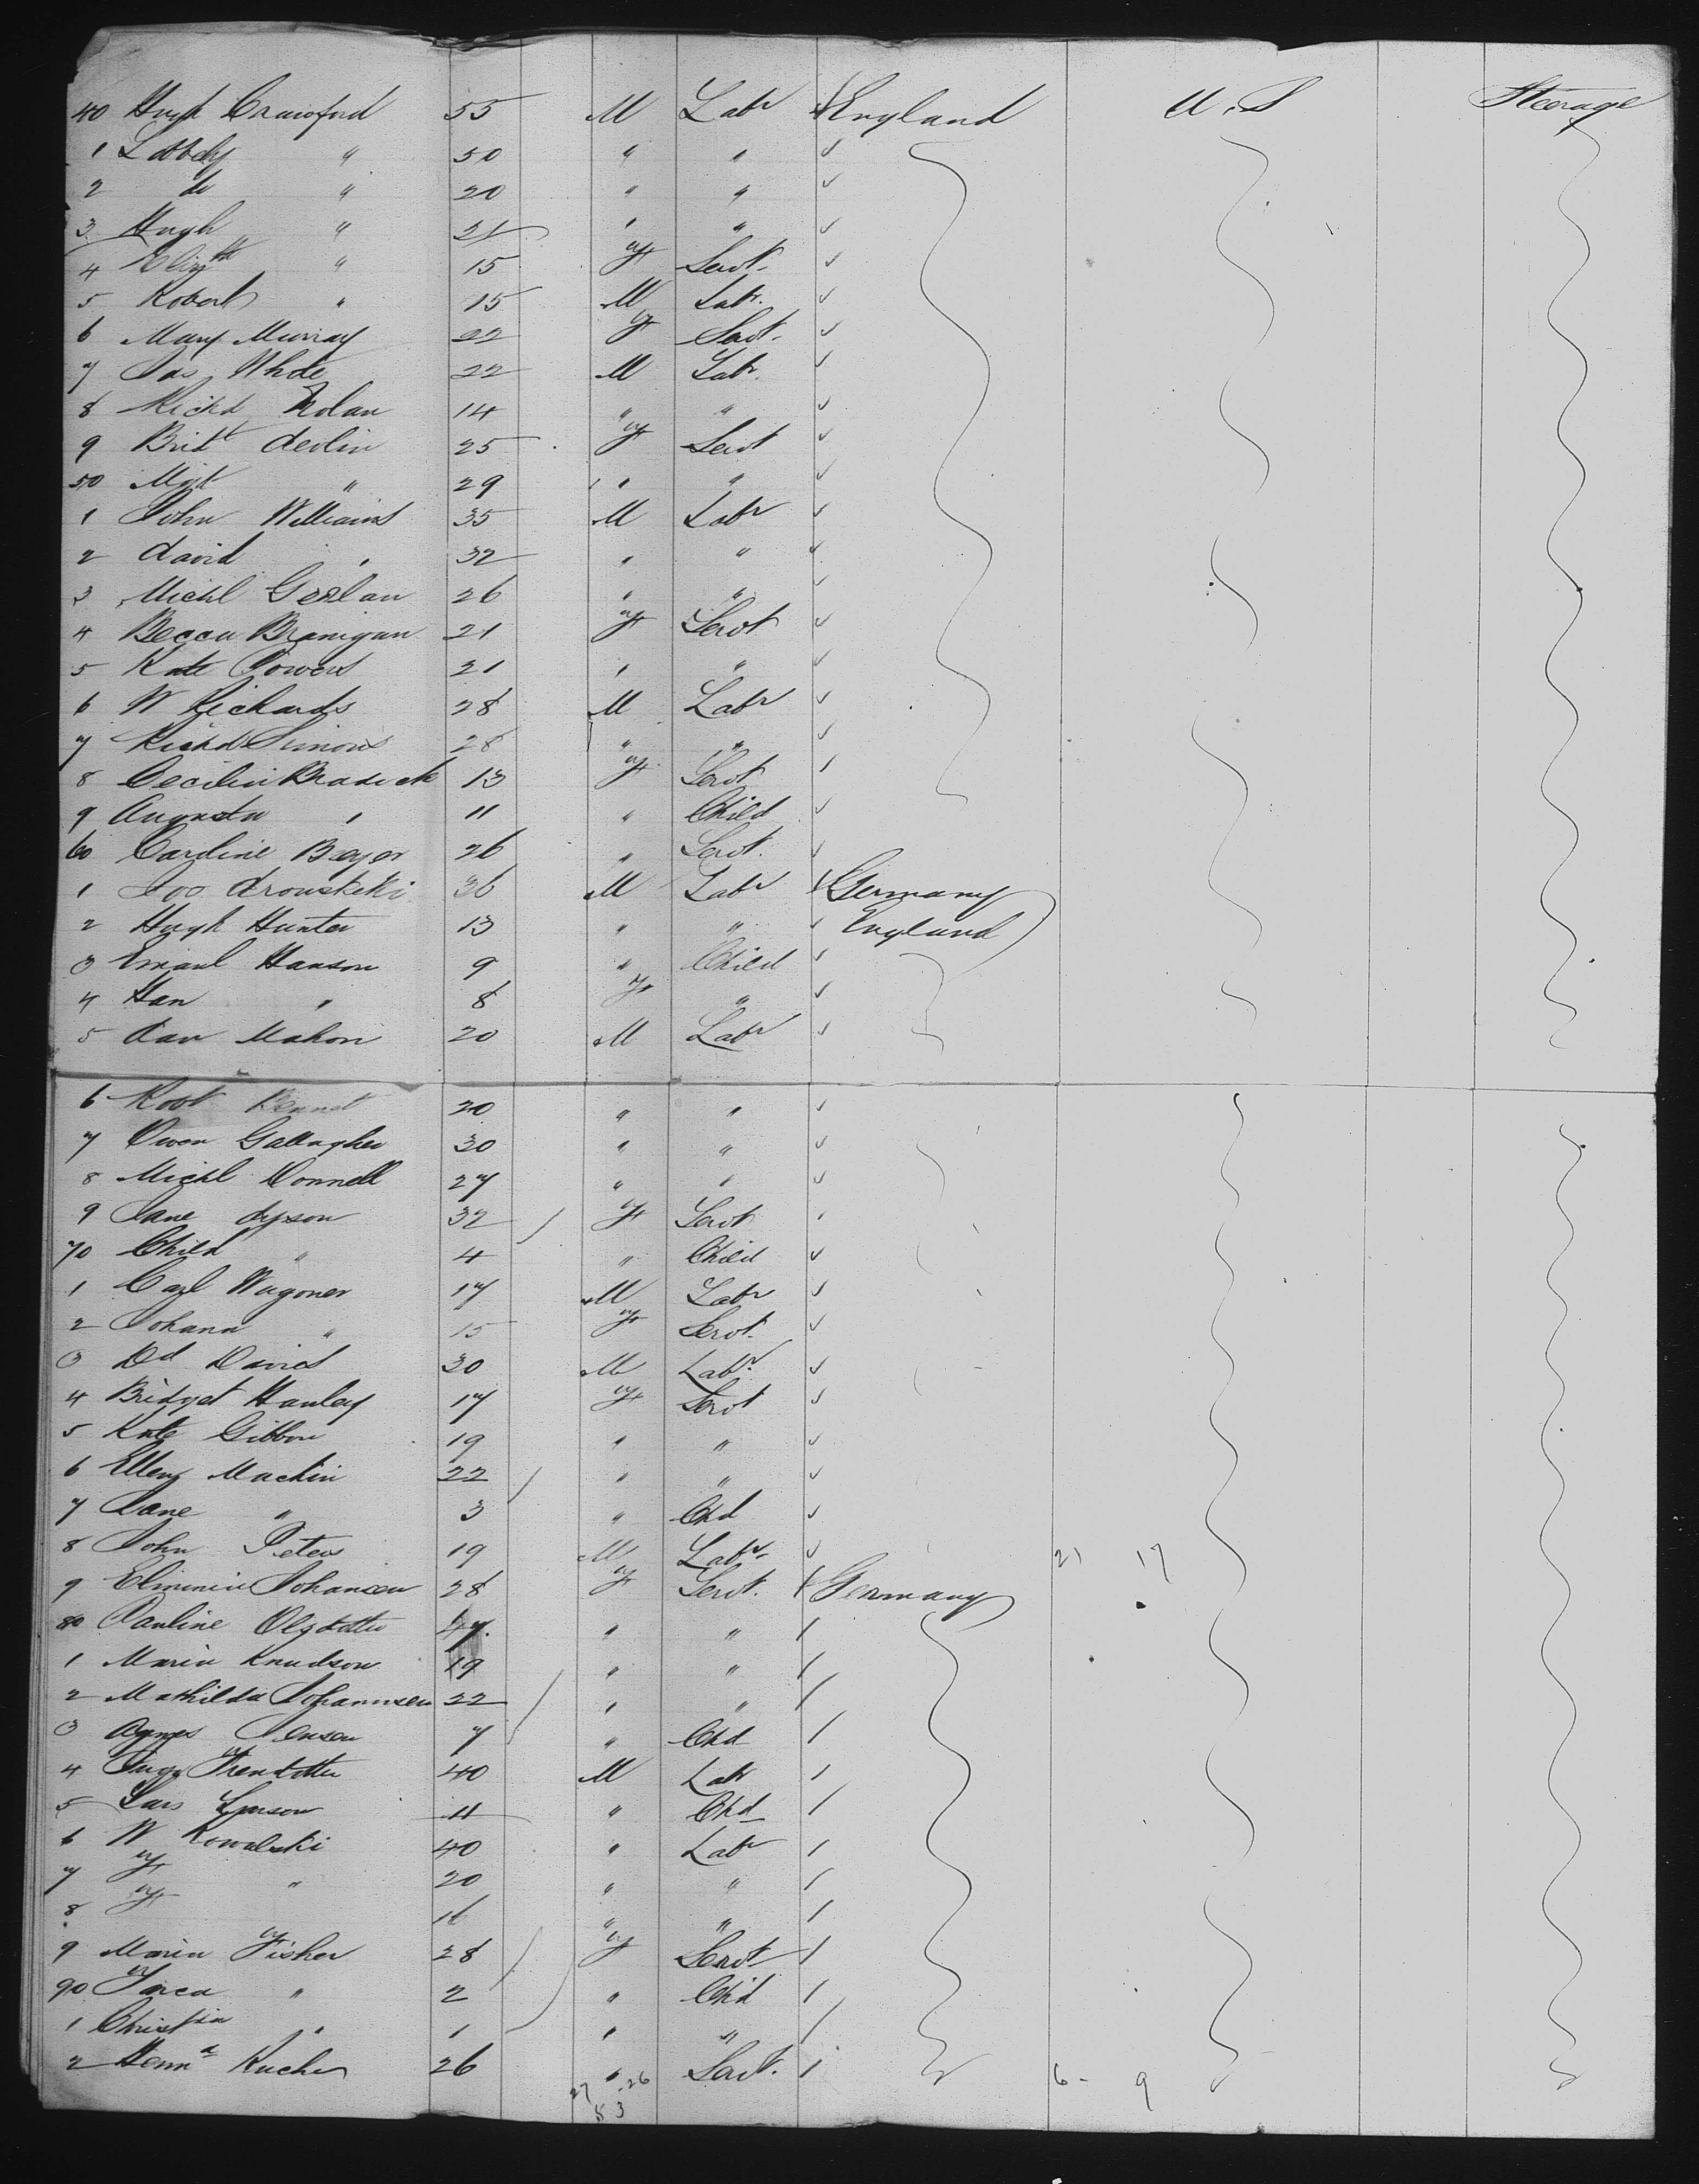 40 Hugh Crawford 55 M Labr England U.S Steerage
1 " 50 " "
2 do " 20 " "
3 Hugh " 21 " "
4 Elizth " 15 F Servt.
5 Robert " 15 M Labr.
6 Mary Murray 22 F Servt.
7 Jas White 22 M Labr.
8 Richd Nolan 14 " "
9 Bridt devlin 25 F Servt
50 Mgt " 29 " "
1 John Williams 35 M Labr
2 david " 32 " "
3 Michl 26 " "
4 Becca Branigan 21 F Servt
5 Kate Powers 21 " "
6 W Richards 28 M Labr
7 Richd Simons 28 " "
8 Cecilia 13 F Servt
9 Augusta " 11 " Child
60 Caroline Beyer 26 " Servt.
1 Jos 36 M Labr Germany
2 Hugh Hunter 13 " " England
3 Emanl Hanson 9 " Child
4 Han " 8 F "
5 dan Mahon 20 M Labr
6 Robt Bennet 20 " "
7 Owen Gallagher 30 " "
8 Michl Donnell 27 " "
9 Jane dyson 32 F Servt
70 Child " 4 " Child
1 Carl Wagoner 17 M Labr
2 Johann " 15 F Servt.
3 Dd David 30 M Labr.
4 Bridget Hanley 17 F Servt
5 Kate Gibbon 19 " "
6 Ellen Mackin 22 " "
7 Jane " 3 " Chd
8 John Peters 19 M Labr. 21 17
9 Johansen 28 F Servt. Germany
80 Pauline Olsdotter 47. " "
1 Maria Knudson 19 " "
2 Mathilda Johannsen 22 " "
3 Agnes Jensen 7 " Chd
4 40 M Labr
5 Lars 11 " Chd
6 W Kowalski 40 " Labr
7 F " 20 " "
8 F 16 " "
9 Maria Fisher 28 F Servt
90 " 2 " Chd
1 Christin " 1 " "
2 Henna 26 " Servt. 6 - 9
27 .26
53